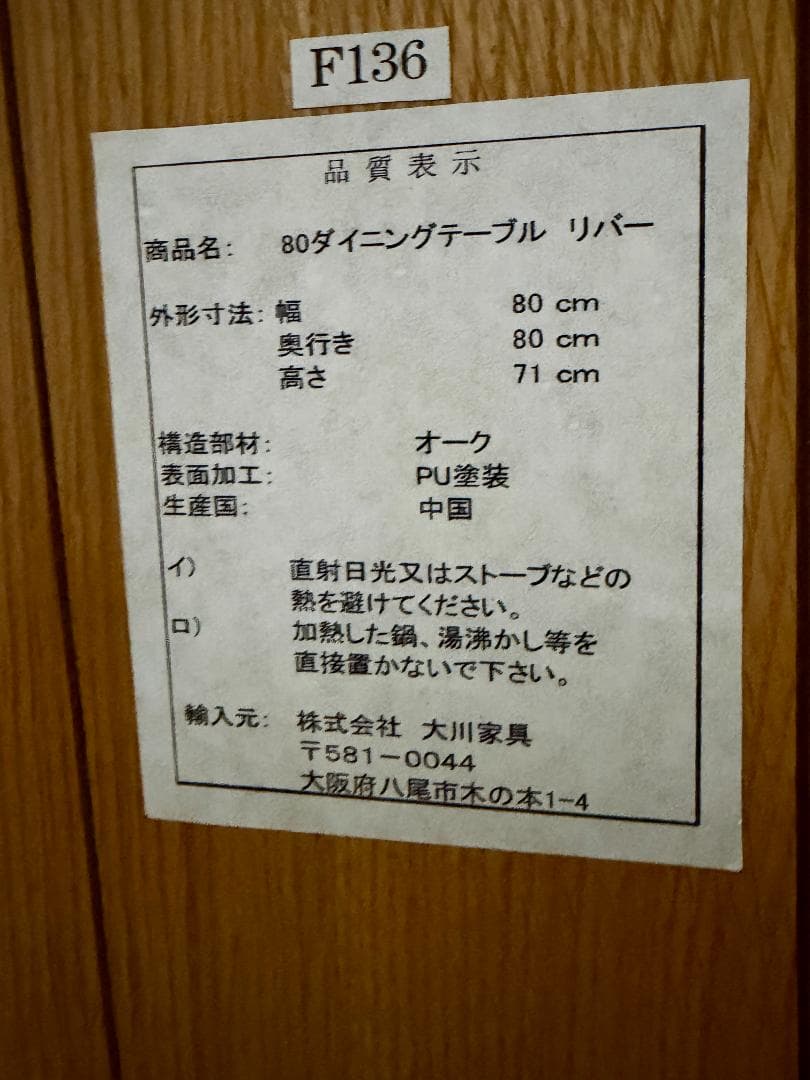 F136
品質表示
商品名: 80ダイニングテーブル リバー
外形寸法: 幅 80 cm
奥行き 80 cm
高さ 71 cm
構造部材: オーク
表面加工: PU塗装
生産国: 中国
イ) 直射日光又はストーブなどの
熱を避けてください。
ロ) 加熱した鍋、湯沸かし等を
直接置かないで下さい。
輸入元: 株式会社 大川家具
〒581-0044
大阪府八尾市木の本1-4